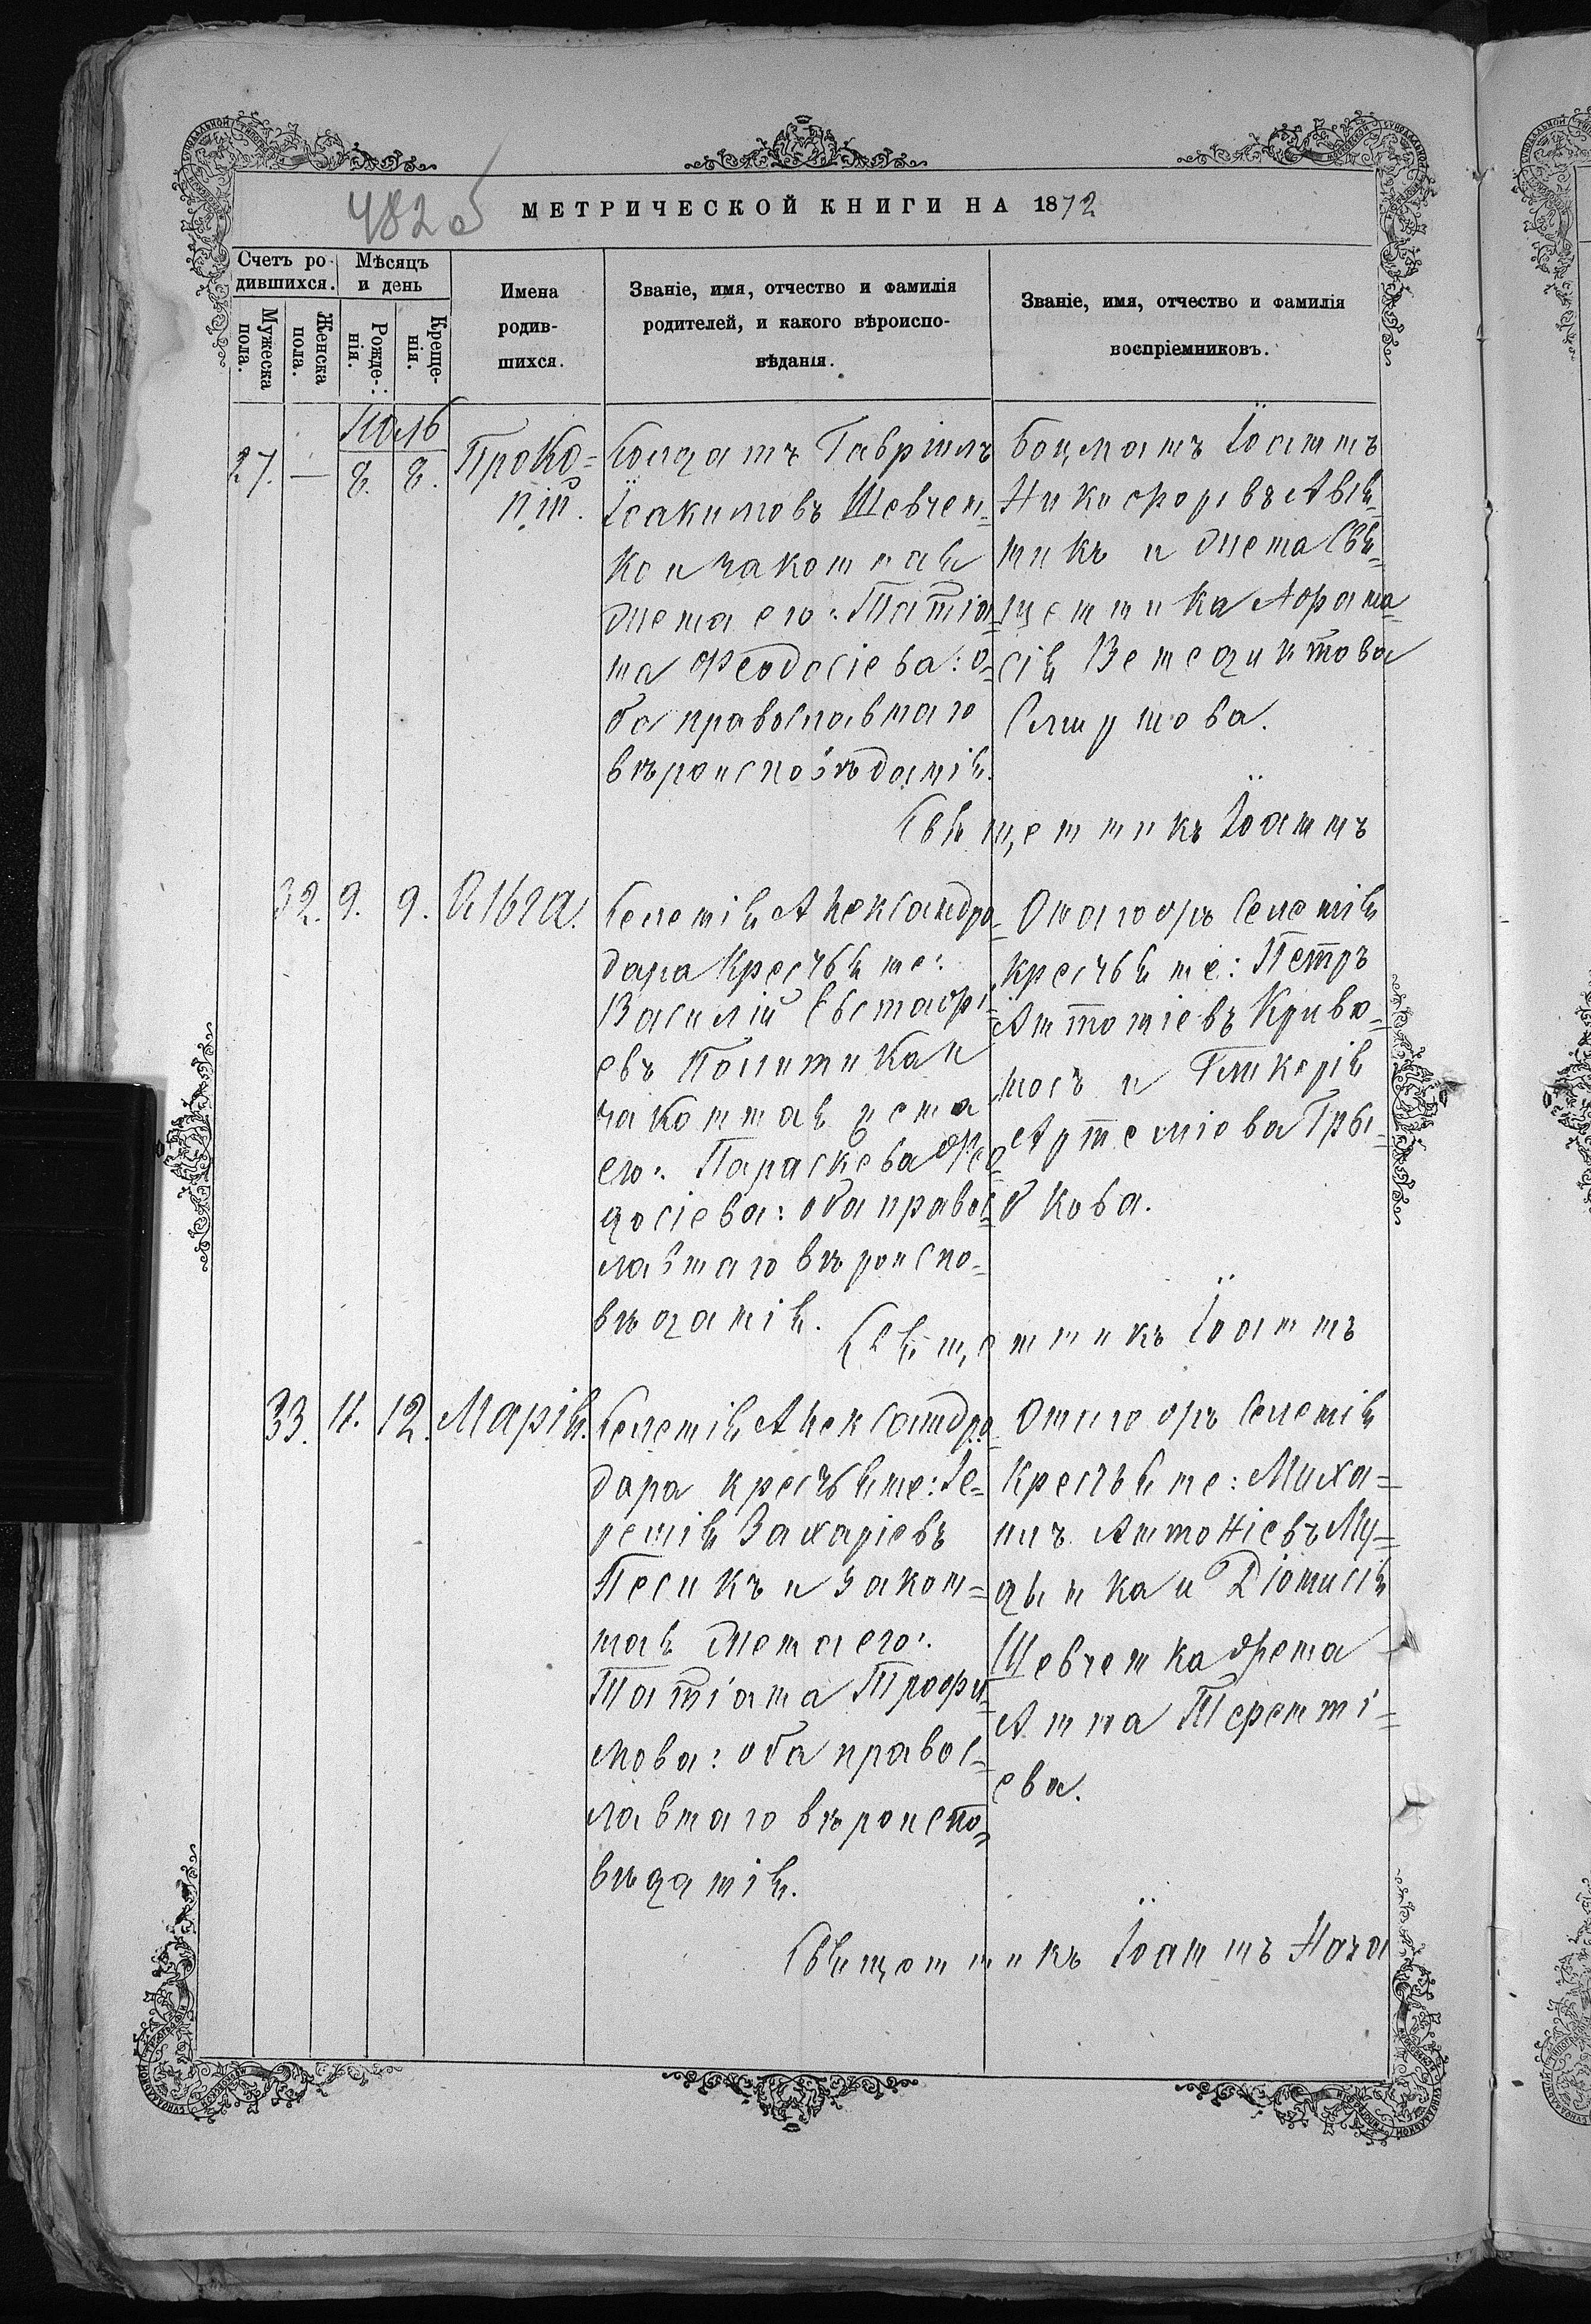 482 об
МЕТРИЧЕСКОЙ КНИГИ НА 1872
Счетъ ро-
дившихся.
Мѣсяцъ
и день
Мужеска
пола.
Женска
пола.
Рожде-
нія.
Креще-
нія.
Имена
родив-
шихся.
Званіе, имя, отчество и фамилія
родителей, и какого вѣроиспо-
вѣданія.
Званіе, имя, отчество и фамилія
воспріемниковъ.
Іюль
27. — 8. 8.
Проко=
пій.
Солдатъ Гавріилъ
Іоакимовъ Шевчен=
ко и законная
жена его: Татіа=
на Феодосіева: о=
ба православнаго
вѣроисповѣданія.
Боцманъ Іоаннъ
Никифоровъ
и жена Свя=
щенника Афана=
сія Венедиктова
Смирнова.
Священникъ Іоаннъ
32. 9. 9.
Ольга.
Селенія Александро=
дара крестьяне:
Василій Евстафі=
евъ Политика и
законная жена
его: Параскева Фео=
досіева: оба правос=
лавнаго вѣроиспо=
вѣданія.
Онагофъ Селенія
крестьяне: Петръ
Антоніевъ Криво=
носъ и Гликерія
Артеміева Гры=
бкова.
Священникъ Іоаннъ
33. 11. 12.
Марія.
Селенія Александро=
дара крестьяне: Іе=
ремія Захаріевъ
Песикъ и закон=
ная жена его:
Татіана Трофи=
мова: оба правос=
лавнаго вѣроиспо=
вѣданія.
Онагофъ Селенія
Крестьяне: Миха=
илъ Антоніевъ Му=
дынка и Діонисія
Шевченка жена
Анна Теренті=
ева.
Священникъ Іоаннъ